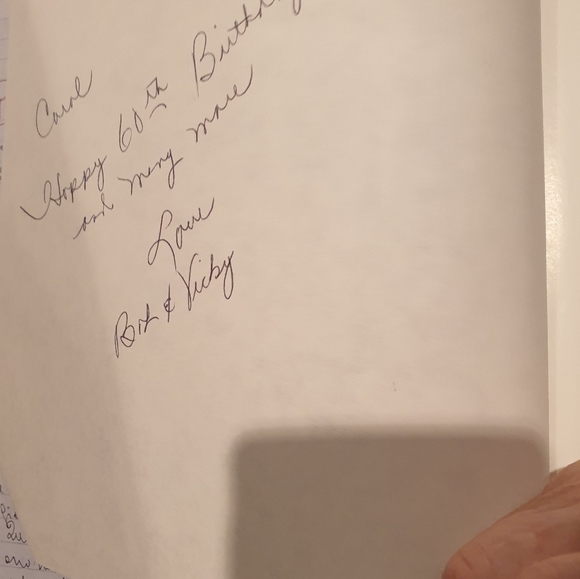 Carol
Happy 60th Birthday
and many more
Love
Bob & Vicky